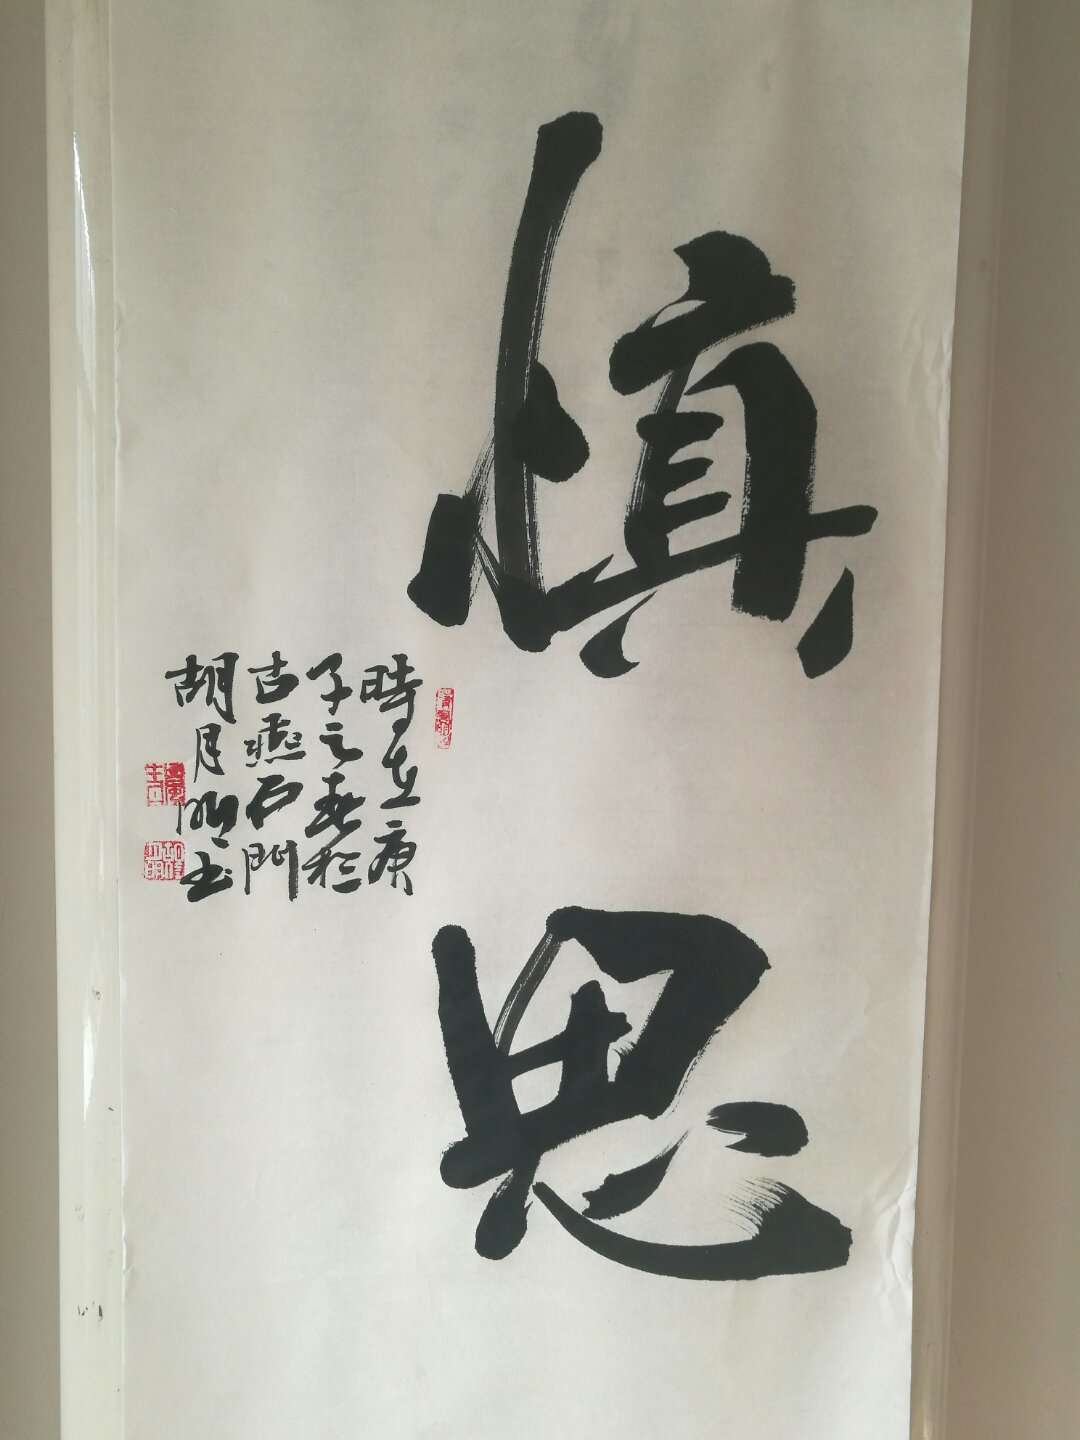 慎思
時在庚
子之春於
古燕石門
胡月明書